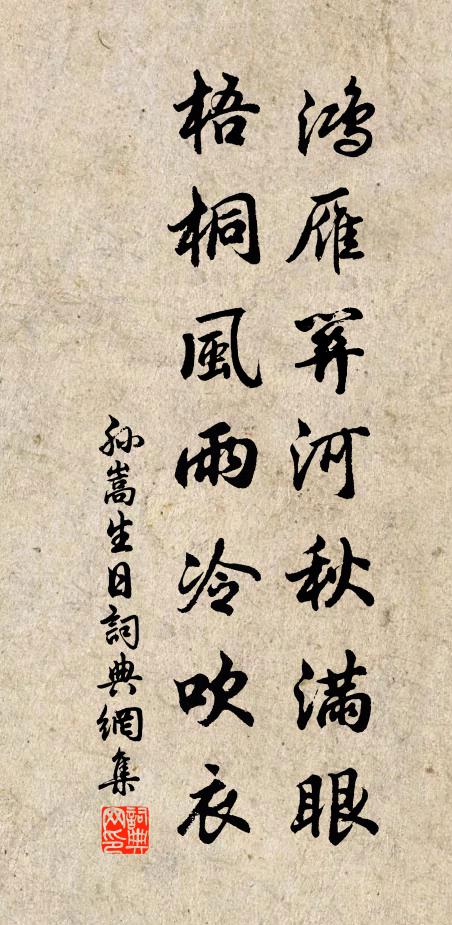 鴻雁關河秋滿眼
梧桐風雨冷吹衣
孙嵩生日詞典網集
詞典网印